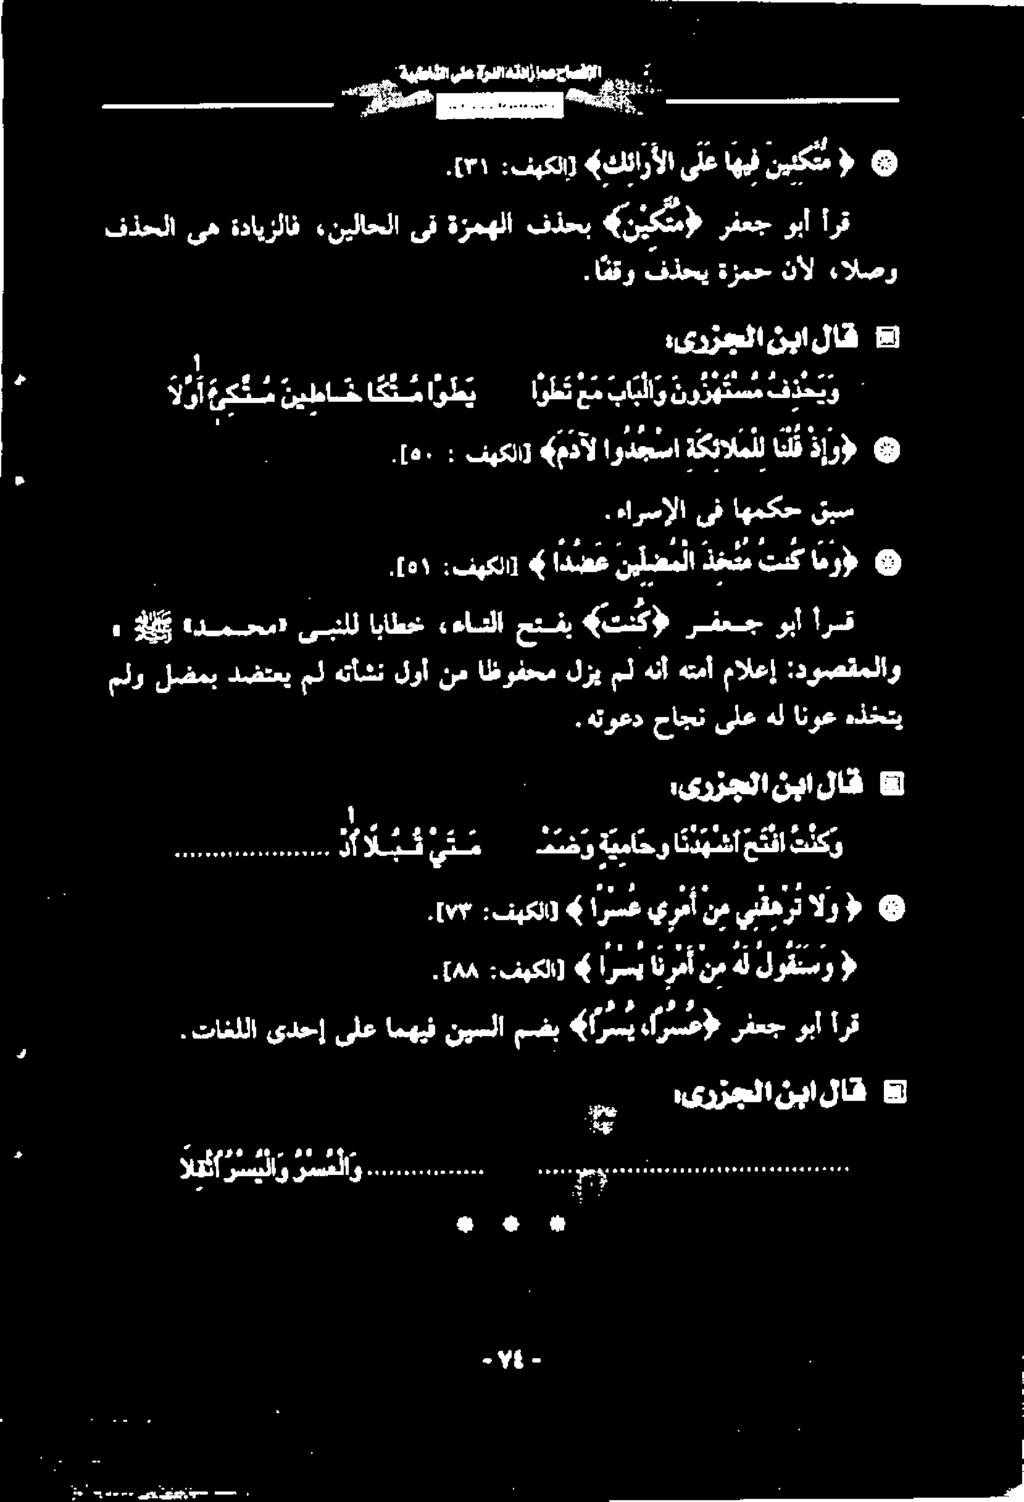 الإفصاح عما زادته الدرة على الشاطبية
﴿ مُّتَّكِئِينَ فِيهَا عَلَى الأَرَائِكِ﴾ [الكهف: ٣١].
قرأ أبو جعفر ﴿مُتَّكِينَ﴾ بحذف الهمزة فى الحالين، فالزيادة هى الحذف
وصلا، لأن حمزة يحذف وقفًا.
قال ابن الجزرى:
وَيَحْذِفُ مُسْتَهْزُونَ وَالْبَابَ مَعْ تَطَوْا يَطَوْا مُتَّكًا خَاطِينَ مُتَّكِئَ أَوَّلَا
﴿وَإِذْ قُلْنَا لِلْمَلَائِكَةِ اسْجُدُوا لآدَمَ﴾ [الكهف : ٥٠].
سبق حكمها فى الإسراء.
﴿وَمَا كُنتُ مُتَّخِذَ الْمُضِلِّينَ عَضُدًا ﴾ [الكهف: ٥١].
قرأ أبو جعفر ﴿كُنتَ﴾ بفتح التاء، خطابا للنبى «محمد» ﷺ «
والمقصود: إعلام أمته أنه لم يزل محفوظا من أول نشأته لم يعتضد بمضل ولم
يتخذه عونا له على نجاح دعوته.
قال ابن الجزرى:
وَكُنْتُ افْتَحَ اشْهَدْنَا وَحَامِيَةٍ وَضَمـْ مَتَيْ قُبُلًا أُدْ ..............
﴿ وَلا تُرْهِقْنِي مِنْ أَمْرِي عُسْرًا ﴾ [الكهف: ٧٣].
﴿ وَسَنَقُولُ لَهُ مِنْ أَمْرِنَا يُسْرًا ﴾ [الكهف: ٨٨].
قرأ أبو جعفر ﴿عُسُرًا، يُسُرًا﴾ بضم السين فيهما على إحدى اللغات.
قال ابن الجزرى:
.............................. ............وَالْعُسْرُ وَالْيُسْرُ أُثْقِلَا
* * *
- ٧٤ -